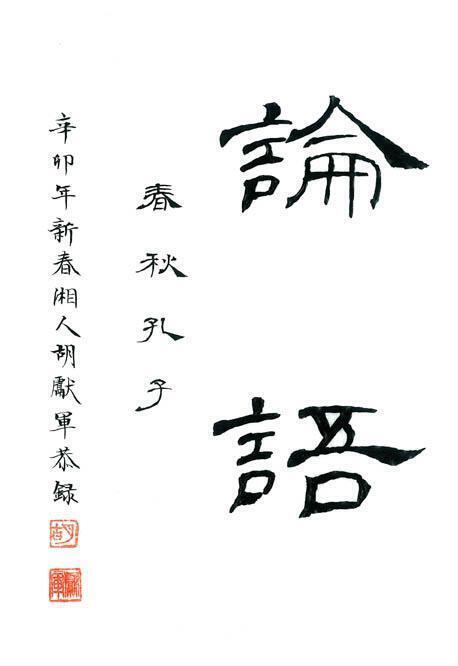 論語
春秋孔子
辛卯年新春湘人胡獻軍恭録